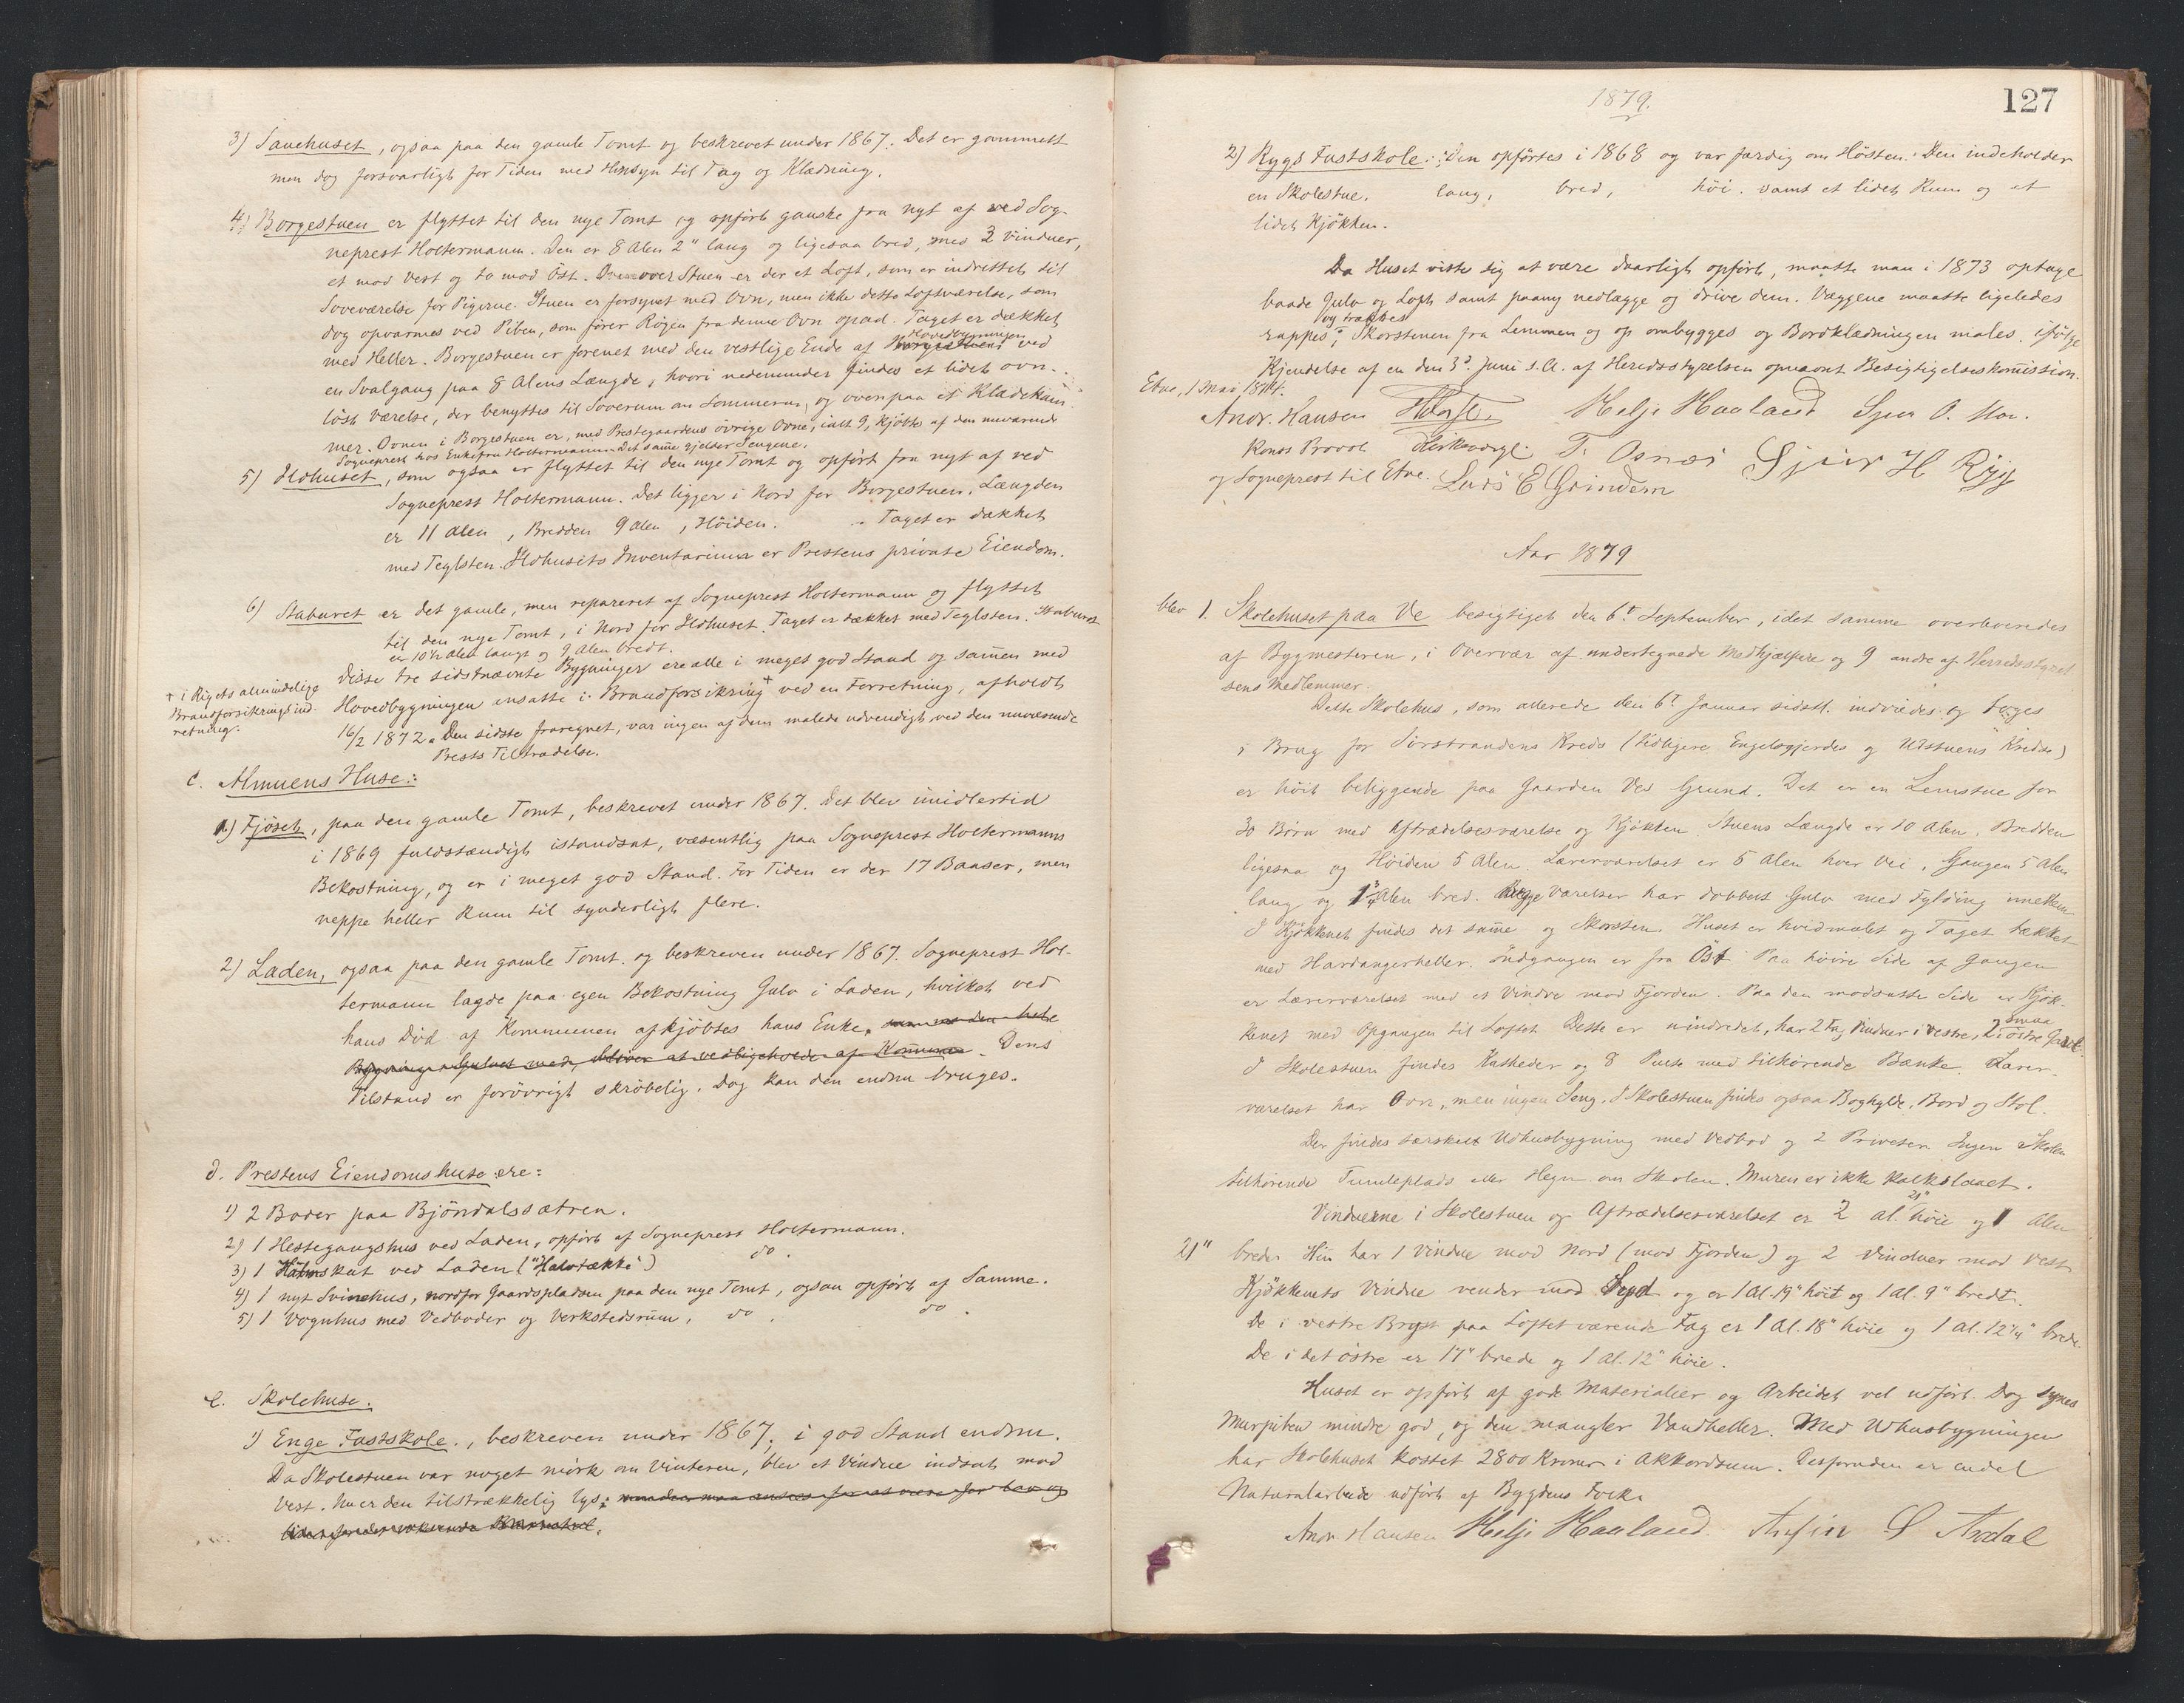 3) Sauehuset, ogsaa paa den gamle Tomt og beskrevet under 1867. Det er gammelt
men dog forsvarligt for Tiden med Hensyn til Tag og Klædning.
4) Borgestuen er flyttet til den nye Tomt og opført ganske fra nyt af ved Sog-
neprest Holtermann. Den er 8 Alen 2" lang og ligesaa bred, med 3 Vinduer,
et mod Vest og to mod Öst. Ovenover Stuen er der et Loft, som er indrettet til
Soveværelse for Pigerne. Stuen er forsynet med Ovn, men ikke dette Loftværelse, som
dog opvarmes ved Piben, som fører Røgen fra denne Ovn opad. Taget er dækket
Hovedbygningen
med Heller. Borgestuen er forenet med den vestlige Ende af Borgestuen ved
en Svalgang paa 8 Alens Længde, hvori nedenunder findes et lidet ovn-
löst Værelse, der benyttes til Soverum om Sommeren, og ovenpaa et Klædekam-
mer. Ovnen i Borgestuen er, med Prestegaardens övrige Ovne, ialt 9, kjöbte af den nuværende
Sogneprest hos Enkefru Holtermann. Det samme gjelder Sengene.
5) Ildhuset, som ogsaa er flyttet til den nye Tomt og opført fra nyt af ved
Sogneprest Holtermann. Det ligger i Nord for Borgestuen. Længden
er 11 Alen, Bredden 9 Alen, Höiden. Taget er dækket
med Teglsten. Ildhusets Inventarium er Prestens private Eiendom.
6) Staburet er det gamle, men repareret af Sogneprest Holtermann og flyttet
til den nye Tomt, i Nord for Ildhuset. Taget er dækket med Teglsten. Staburet
er 10½ Alen langt og 9 Alen bredt.
Disse tre sidstnævnte Bygninger ere alle i meget god Stand og sammen med
Hovedbygningen ansatte i Brandforsikring + ved en Forretning, afholdt
+ i Rigets almindelige
Brandforsikringsind-
retning.
16/2 1872. Den sidste fraregnet, var ingen af dem malede udvendigt ved den nuværende
Prests Tiltrædelse.
C. Almuens Huse:
1) Fjöset, paa den gamle Tomt, beskrevet under 1867. Det blev imidlertid
i 1869 fuldstændigt istandsat, væsentlig paa Sogneprest Holtermanns
Bekostning, og er i meget god Stand. For Tiden er der 17 Baaser, men
neppe heller Rum til synderligt flere.
2) Laden, ogsaa paa den gamle Tomt og beskreven under 1867. Sogneprest Hol-
termann lagde paa egen Bekostning Gulv i Laden, hvilket ved
hans Död af Kommunen afkjöbtes hans Enke, samt den hele
Bygning, Gulvet med, bliver at vedligeholde af Kommunen. Dens
Tilstand er forövrigt skröbelig. Dog kan den endnu bruges.
d. Prestens Eiendomshuse ere:
1) 2 Boder paa Bjöndalssætren.
2) 1 Hestegangshus ved Laden, opført af Sogneprest Holtermann.
3) 1 Halmskut ved Laden ("Halvtække") do.
4) 1 nyt Svinehus, nordfor Gaardspladsen paa den nye Tomt, ogsaa opført af Samme.
5) 1 Vognhus med Vedboder og Verkstedsrum, do. do.
e. Skolehuse.
1) Enge Fastskole., beskreven under 1867, i god Stand endnu.
Da Skolestuen var noget mörk om Vinteren, blev et Vindue indsat mod
Vest. Nu er den tilstrækkelig lys;
1879.
127
2) Rygs Fastskole: Den opførtes i 1868 og var færdig om Hösten. Den indeholder
en Skolestue. lang, bred, höi. samt et lidet Rum og et
lidet Kjökken.
Da Huset viste sig at være daarligt opført, maatte man i 1873 optage
baade Gulv og Loft samt paany nedlægge og drive dem. Væggene maatte ligeledes
rappes, Skorstenen fra Lemmen og op ombygges og Bordklædningen males, ifölge
Kjendelse af en den 3d Juni s. A. af Heredsstyrelsen opnævnt Besigtigelseskommission.
Etne, 1 Mai 1874.
Andr. Hansen Helje Haaland
Kons Provst Kirkeværge T. Osnes Sjur H Ryg
og Sogneprest til Etne. Lars E Grindem
Aar 1879
blev 1. Skolehuset paa Ve besigtiget den 6te September, idet samme overleveredes
af Bygmesteren, i Overvær af undertegnede Medhjælpere og 9 andre af Herredsstyrel-
sens Medlemmer.
Dette Skolehus, som allerede den 6te Januar sidstl. indviedes og toges
i Brug for Sørstrandens Kreds (tidligere Engelsgjerdes og Ulstuens Kredse)
er höit beliggende paa Gaarden Ves Grund. Det er en Lemstue for
30 Börn med Aftrædelsesværelse og Kjökken. Stuens Længde er 10 Alen, Bredden
ligesaa og Höiden 5 Alen. Lærerværelset er 5 Alen hver Vei, Gangen 5 Alen
lang og 1¾ Alen bred. Begge Værelser har dobbelt Gulv med Fylding imellem
I Kjökkenet findes det samme og Skorsten. Huset er hvidmalet og Taget tækket
med Hardangerheller. Indgangen er fra Öst. Paa höire Side af Gangen
er Lærerværelset med et Vindue mod Fjorden. Paa den modsatte Side er Kjök-
smaa
kenet med Opgangen til Loftet. Dette er uindredet, har 2 Fag Vinduer i vestre, 2 i östre Gavl.
I Skolestuen findes Katheder og 8 Pulte med tilhörende Bænke. Lærer-
værelset har Ovn, men ingen Seng. I Skolestuen findes ogsaa Boghylde, Bord og Stol.
Der findes særskilt Udhusbygning med Vedbod og 2 Priveter. Ingen Skolen
tilhörende Tumleplads eller Hegn om Skolen. Muren er ikke kalkslaaet.
Vinduerne i Skolestuen og Aftrædelsesværelset er 2 al. höie og 1 Alen
21" brede. Hin har 1 Vindue mod Nord (mod Fjorden) og 2 Vinduer mod Vest
Kjökkenets Vindue vender mod Syd og er 1 Al. 19" höit og 1 Al. 9" bredt.
De i vestre Bryst paa Loftet værende Fag er 1 Al. 18" höie og 1 Al. 12¼" brede
De i det östre er 17" brede og 1 Al. 12" höie.
Huset er opført af gode Materialier og Arbeidet vel udført. Dog synes
Murpiben mindre god, og den mangler Vandheller. Med Udhusbygningen
har Skolehuset kostet 2800 Kroner i Akkordsum. Desforuden er endel
Naturalarbeide udført af Bygdens Folk.
Andr Hansen Helje Haaland. Anfin Årdal